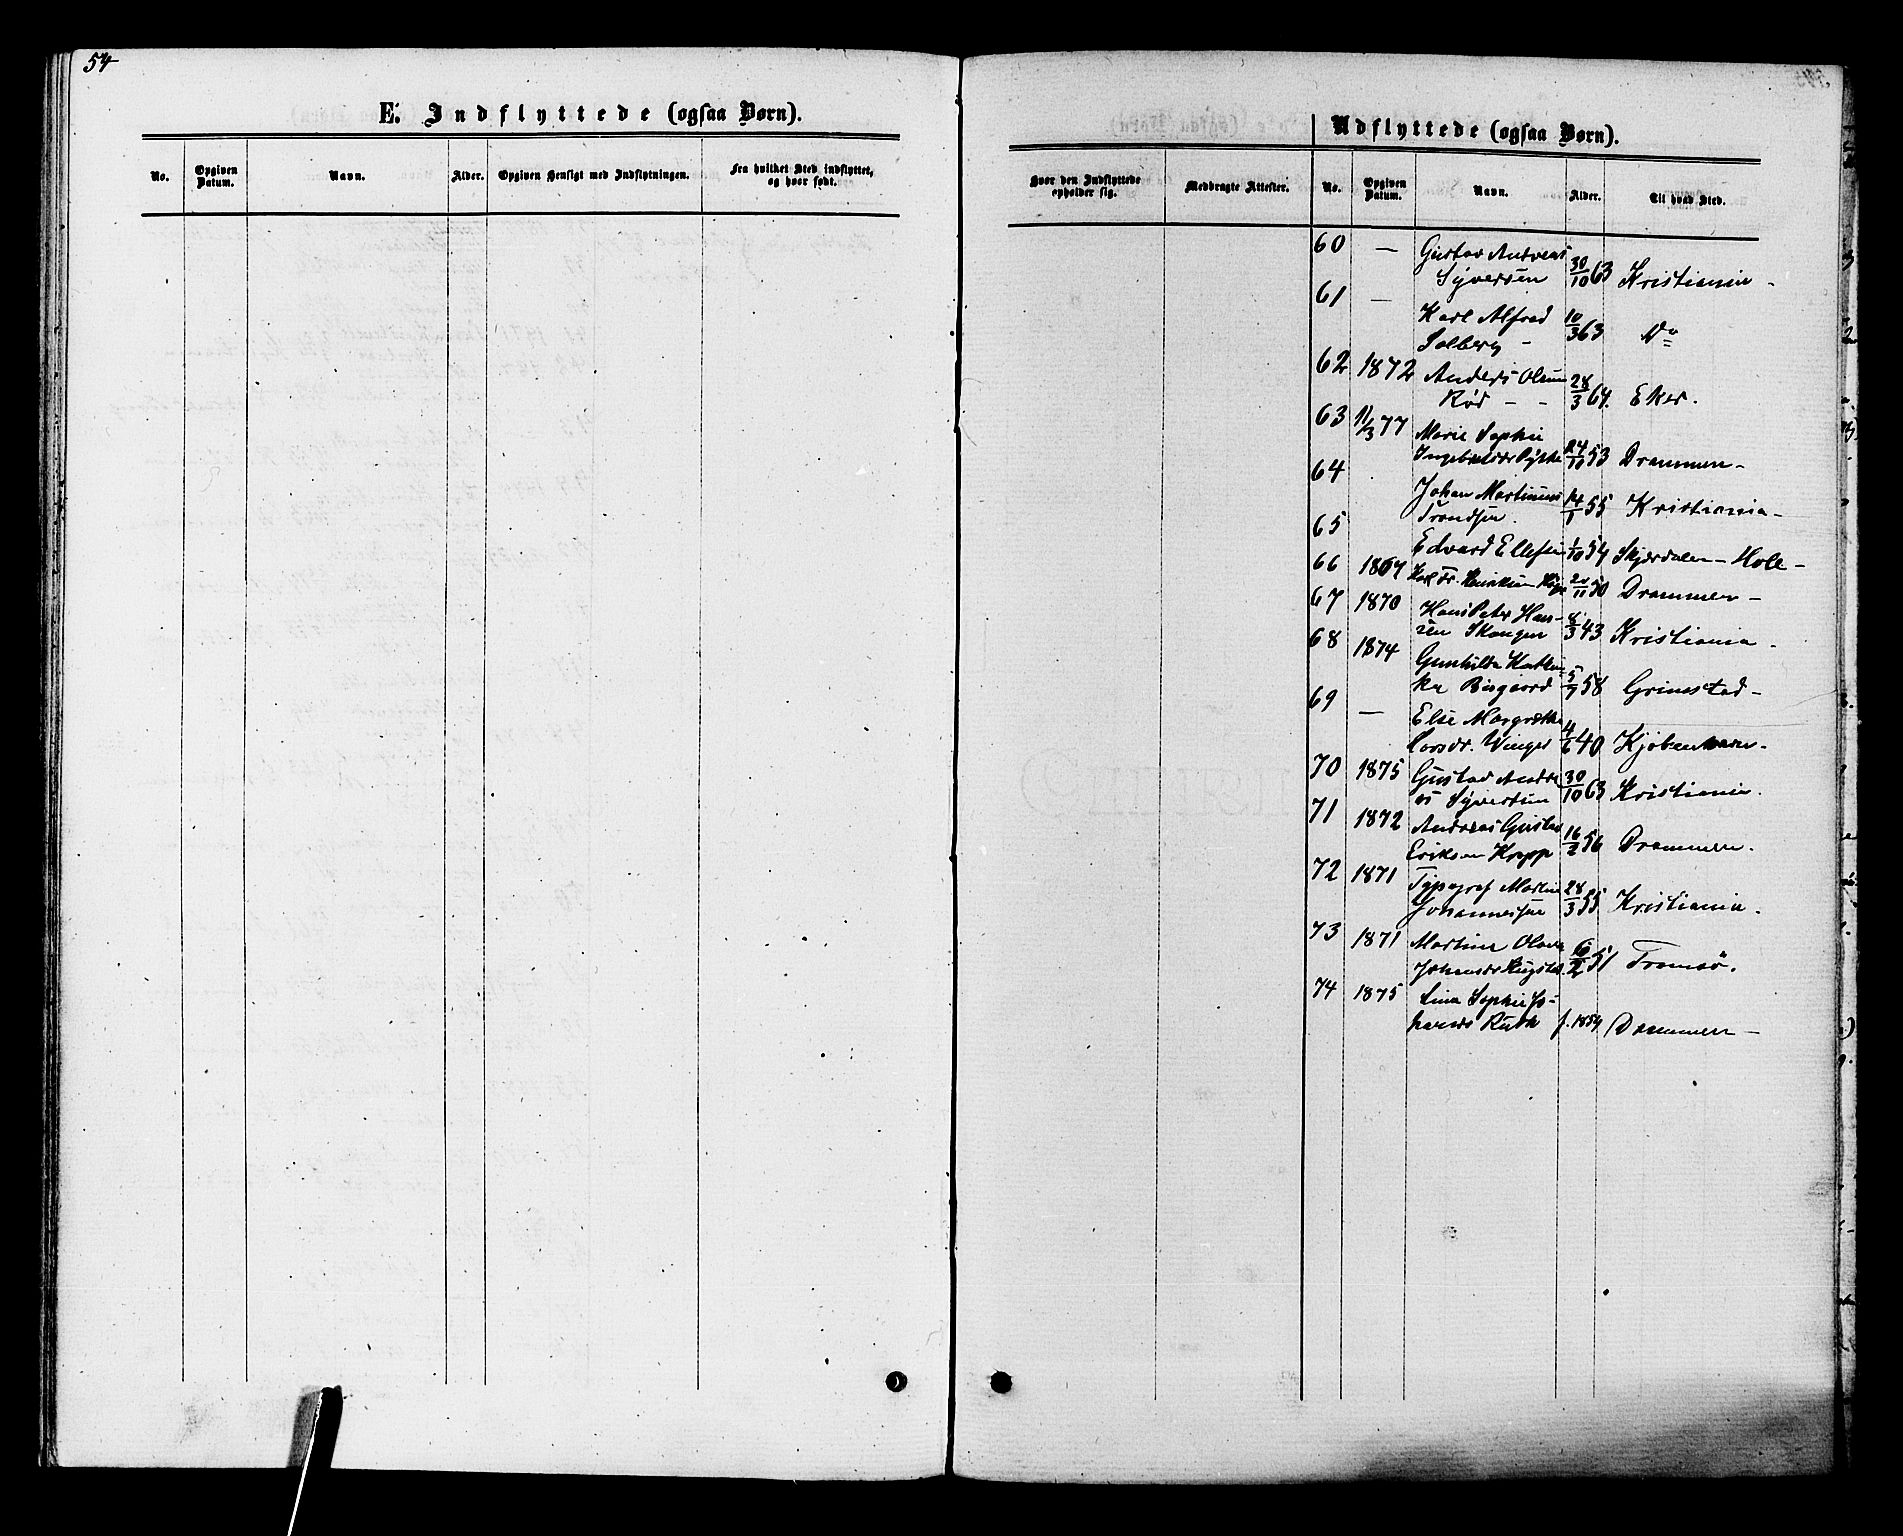 54
E. Indflyttede (ogsaa Børn).
No. Opgiven Datum. Navn. Alder. Opgiven Hensigt med Indflytningen. Fra hvilket Sted indflyttet, og hvor født.
Udflyttede (ogsaa Børn).
Hvor den Indflyttede opholder sig. Medbragte Attester. No. Opgiven Datum. Navn. Alder. Til hvad Sted.
60 — Gustav Andreas
Syversen 30/10 63 Kristiania -
61 — Karl Alfred
Solberg - 10/3 63 Do
62 1872 Anders Olsen
Rød - - 28/3 64. Eker.
63 11/3 77 Marie Sophie
24/10 53 Drammen -
64 Johan Martinus
Trondsen. 14/1 55 Kristiania -
65 Edvard Ellefsen 1/10 54 Skjærdalen - Hole -
66 1867 Karl Fr. Henriksen 20/11 50 Drammen -
67 1870 Hans Peter Han-
sen Skougen 8/3 43 Kristiania -
68 1874 Gunhilda Kathin-
ka Bisgaard 5/7 58 Grimstad -
69 — Else Margrethe
Larsdr. Winger 4/6 40 Kjøbenhavn -
70 1875 Gustav Andre
as Syvertsen 30/10 63 Kristiania.
71 1872 Andreas Gustav
Eriksen Kopp 16/2 56 Drammen.
72 1871 Typograf Martin
Johannessen 28/3 55 Kristiania.
73 1871 Martine Olava
Johansdr 16/2 51 Tromsö.
74 1875 Lina Sophie Jo-
Ruth f. 1854 Drammen -